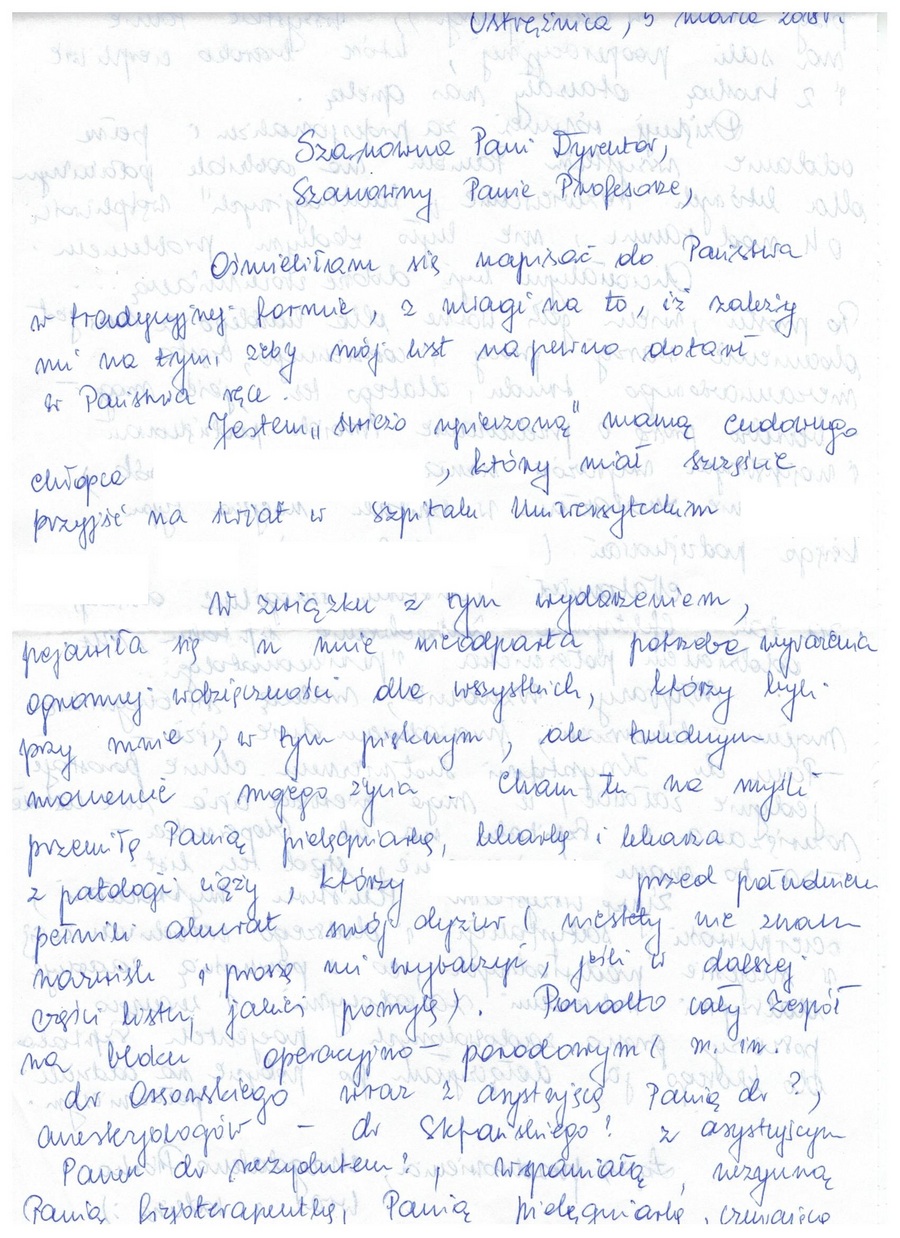 Ostrężnica, 5 marca 2018r.
Szanowna Pani Dyrektor,
Szanowny Panie Profesorze,
Ośmieliłam się napisać do Państwa
w tradycyjnej formie, z uwagi na to, iż zależy
mi na tym, żeby mój list na pewno dotarł
w Państwa ręce.
Jestem „świeżo upieczoną" mamą cudownego
chłopca , który miał szczęście
przyjść na świat w Szpitalu Uniwersyteckim
W związku z tym wydarzeniem,
pojawiła się u mnie nieodparta potrzeba wyrażenia
ogromnej wdzięczności dla wszystkich, którzy byli
przy mnie, w tym pięknym, ale trudnym
momencie mojego życia. Mam tu na myśli
przemiłą Panią pielęgniarkę, lekarkę i lekarza
z patologii ciąży, którzy przed południem
pełnili akurat swój dyżur (niestety nie znam
nazwisk i proszę mi wybaczyć, jeśli w dalszej
części listu, jakieś pomylę). Ponadto cały Zespół
na bloku operacyjno-porodowym (m.in.
dr Ossowskiego wraz z asystującą Panią dr ?,
anestezjologów – dr z asystującym
Panem dr rezydentem!, wspaniałą,
Panią fizjoterapeutkę, Panią pielęgniarkę,